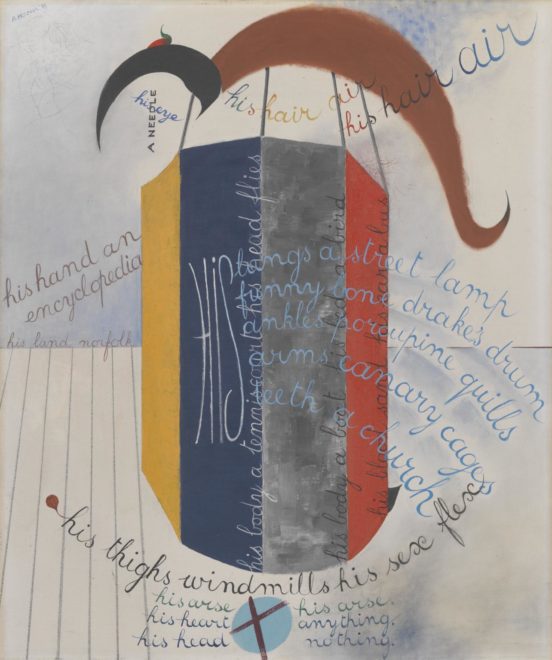 his eye
A NEEDLE
his hair air
his hair air
his hand an
encyclopedia
his land norfolk
HIS
lungs a street lamp
funny bone drake's drum
ankles porcupine quills
arms canary cages
teeth a church
his body a tennis court his head flies
his body a boot his head a bird
his thighs windmills his sex flex
his arse
his heart
his head
his arse.
anything.
nothing.